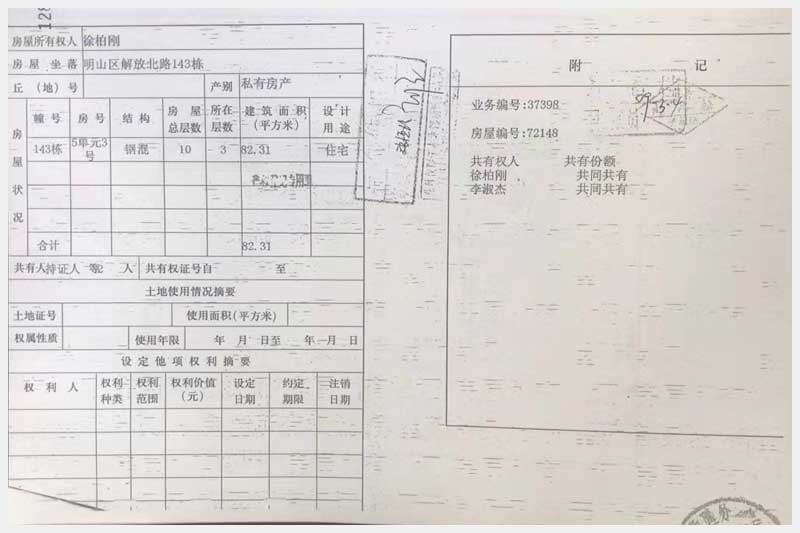 128
房屋所有权人 徐柏刚
房屋坐落 明山区解放北路143栋
丘(地)号 产别 私有房产
房屋状况
幢号 房号 结构 房屋总层数 所在层数 建筑面积(平方米) 设计用途
143栋 5单元3号 钢混 10 3 82.31 住宅
合计 82.31
共有人 持证人 等 人 共有权证号自 至
土地使用情况摘要
土地证号 使用面积(平方米)
权属性质 使用年限 年 月 日至 年 月 日
设定他项权利摘要
权利人 权利种类 权利范围 权利价值(元) 设定日期 约定期限 注销日期
附记
业务编号:37398
房屋编号:72148
共有权人 共有份额
徐柏刚 共同共有
李淑杰 共同共有